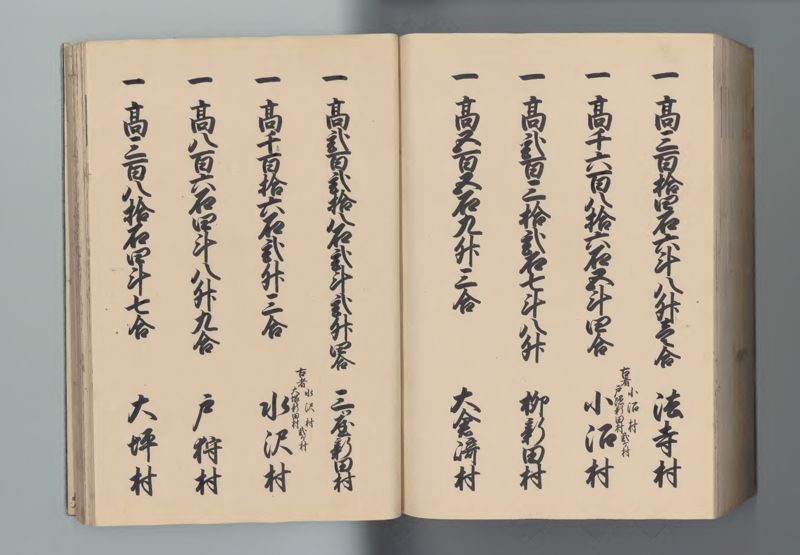 一 高三百拾四石六斗八升壱合 法寺村
一 高千六百八拾六石五斗四合 小沼村
古者 小沼村
戸隠新田村 弐ヶ村
一 高弐百三拾弐石七斗八升 柳新田村
一 高五百五石九升三合 大倉崎村
一 高弐百弐拾八石弐斗弐升四合 三屋新田村
一 高千百拾六石弐升三合 水沢村
古者 水沢村
新田村 弐ヶ村
一 高八百六石四斗八升九合 戸狩村
一 高三百八拾石四斗七合 大坪村